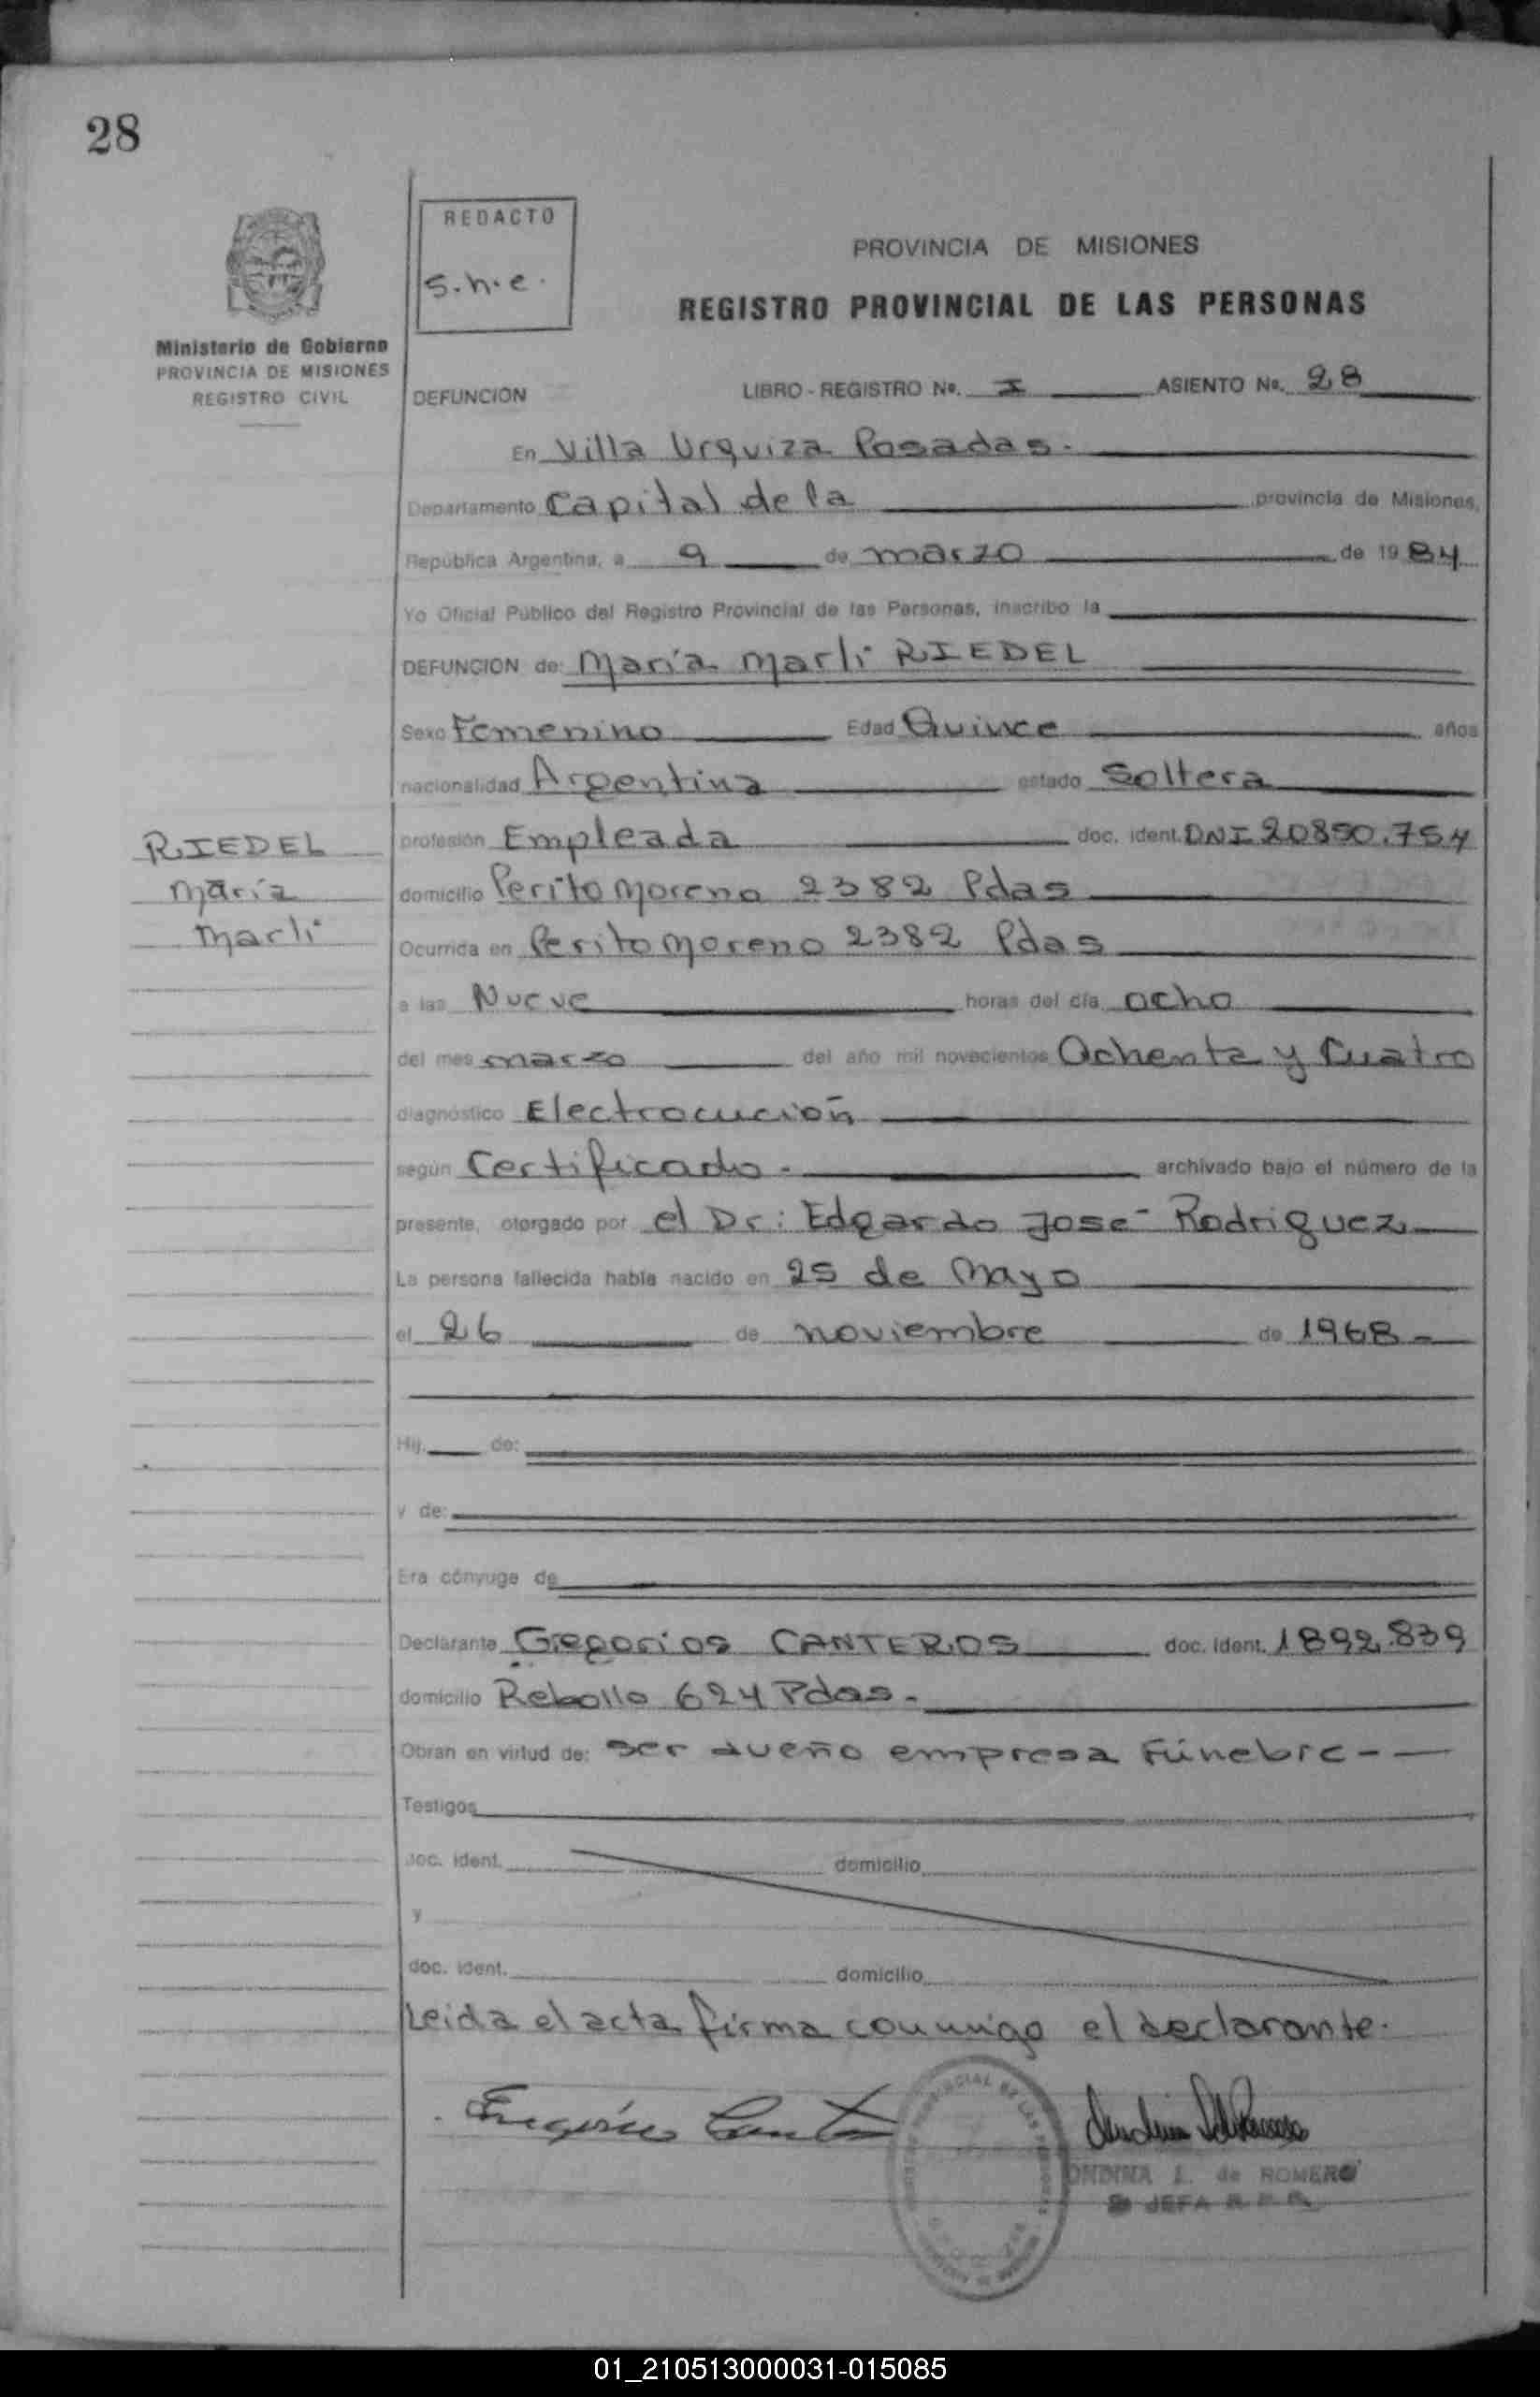 28
REDACTO
s.n.e.
PROVINCIA DE MISIONES
REGISTRO PROVINCIAL DE LAS PERSONAS
Ministerio de Gobierno
PROVINCIA DE MISIONES
REGISTRO CIVIL
DEFUNCION LIBRO - REGISTRO Nº. I ASIENTO Nº. 28
En Villa Urquiza Posadas.
Departamento Capital de la provincia de Misiones,
República Argentina, a 9 de marzo de 1984
Yo Oficial Público del Registro Provincial de las Personas, inscribo la
DEFUNCION de: María Marli RIEDEL
Sexo Femenino Edad Quince años
nacionalidad Argentina estado Soltera
RIEDEL
María
Marli
profesión Empleada doc. ident. DNI 20850.754
domicilio Perito Moreno 2382 Pdas
Ocurrida en Perito Moreno 2382 Pdas
a las Nueve horas del día ocho
del mes marzo del año mil novecientos Ochenta y Cuatro
diagnóstico Electrocución
según Certificado. archivado bajo el número de la
presente, otorgado por el Dr: Edgardo José Rodriguez
La persona fallecida había nacido en 25 de Mayo
el 26 de noviembre de 1968
Hij de:
y de:
Era cónyuge de
Declarante Gregorios CANTEROS doc. ident. 1892.839
domicilio Rebollo 624 Pdas.
Obran en virtud de: ser dueño empresa Fúnebre
Testigos
doc. ident. domicilio
y
doc. ident. domicilio
Leida el acta firma conmigo el declarante.
ONDINA I. de ROMERO
JEFA R. P. P.
01_210513000031-015085